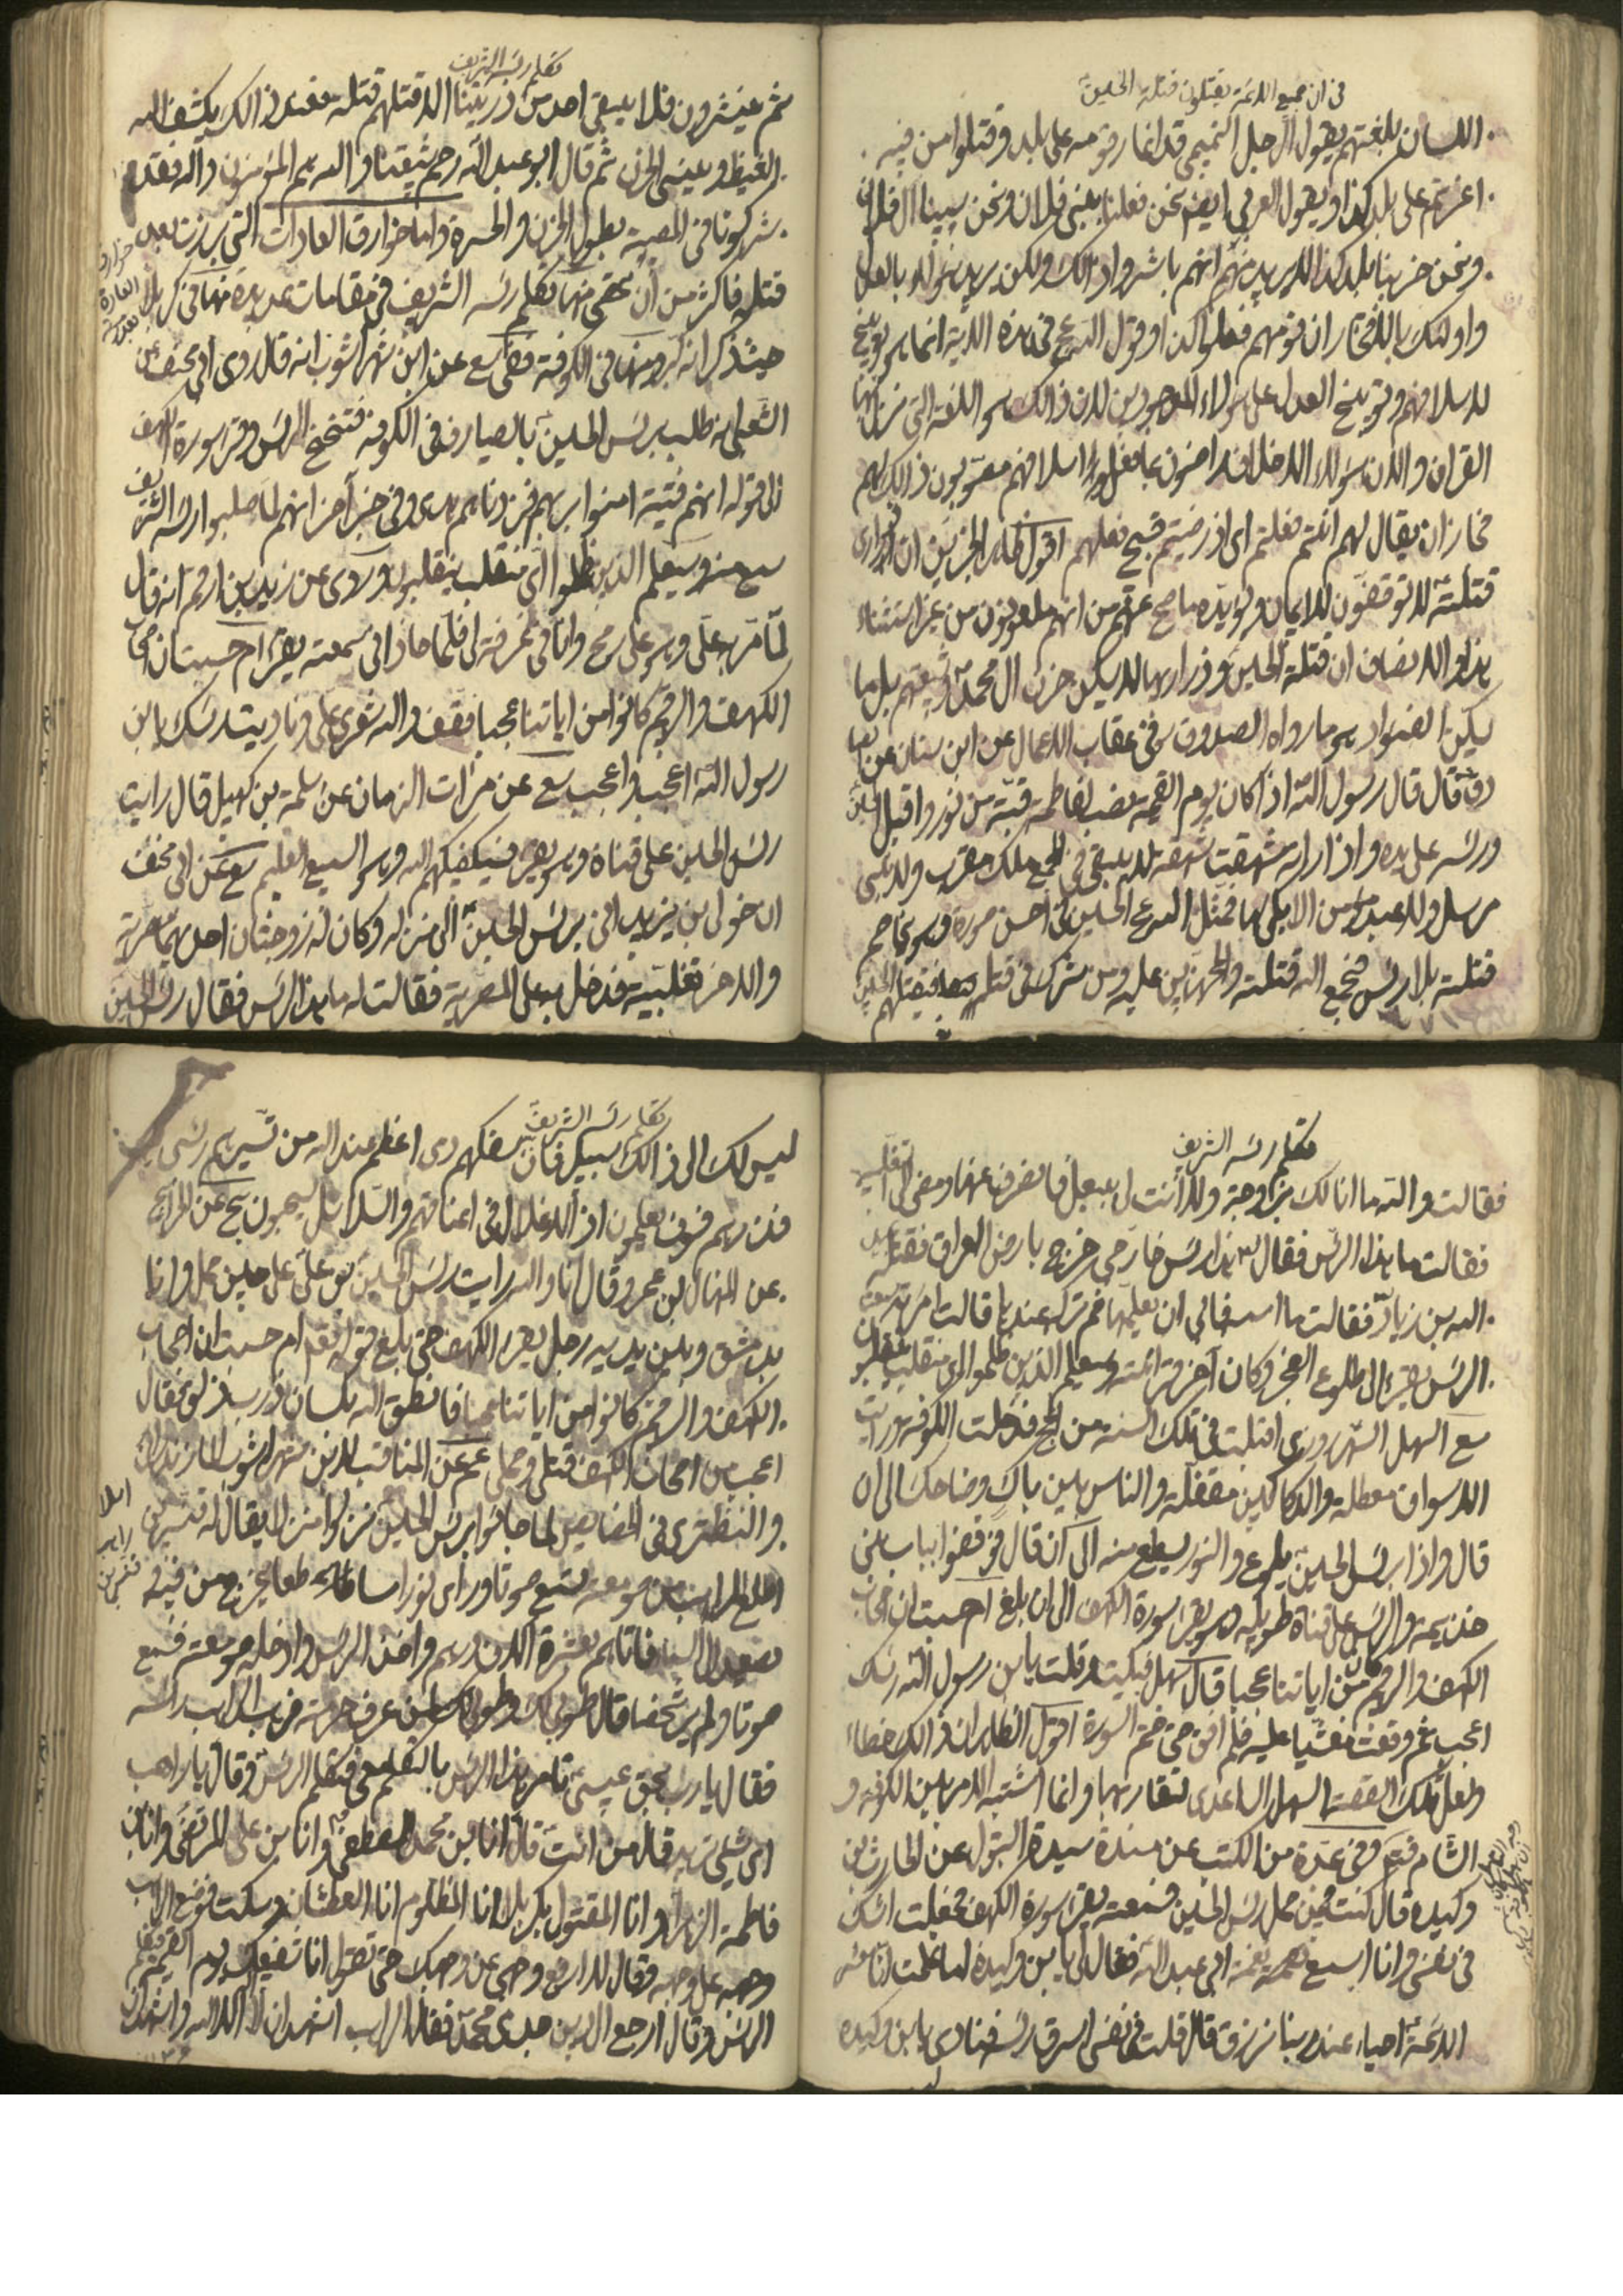 في ان جميع الائمة يقتلون قتلة الحسين
اللسان بلغتهم يقول الرجل التميمي قد اغار قومه على بلد وقتلوا من فيه
اغرتم على بلد كذا ويقول العربي ايضا نحن فعلنا ببني فلان ونحن سبينا ال فلان
ونحن خربنا بلد كذا لا يريد انهم باشروا ذلك ولكن يريد هؤلاء بالعذل
واولئك بالافتخار ان قومهم فعلوا كذا وقول الله عج في هذه الاية انما هو توبيخ
لاسلافهم وتوبيخ العذل على هؤلاء الموجودين لان ذلك هو اللغة التي نزل بها
القران والان هؤلاء الاخلاف راضون بما فعل اسلافهم مصوبون ذلك لهم
فجاز ان يقال لهم انتم فعلتم اي اذ رضيتم قبيح فعلهم اقول ظاهر الخبرين ان ذراري
قتلته لا توفقون للايمان ويؤيده ما صح عنهم من انهم ملعونون من غير استثناء
هذا والانصاف ان قتلة الحسين وذراريها لا يسكن حزن ال محمد وشيعتهم بل ما
يسكن الفؤاد هو ما رواه الصدوق في عقاب الاعمال عن ابن سنان عن
قال قال رسول الله اذا كان يوم القيمة نصب لفاطمة قبة من نور واقبل الحسين
ورأسه على يده واذا راته شهقت شهقة لا يبقى في الجمع ملك مقرب ولا نبي
مرسل ولا عبد مؤمن الا بكى لها فيمثل الله عج الحسين في احسن صورة وهو يخاصم
قتلته بلا رأس فيجمع الله قتلته والمجهزين عليه ومن شرك في قتله فيقتلهم
تكلم رأسه الشريف
ثم ينشرون فلا يبقى احد من ذريتنا الا قتلهم قتلة فعند ذلك يكشف الله
الغيظ وينسي الحزن ثم قال ابو عبد الله رحم شيعتنا والله هم المؤمنون والله فقد
شركونا في المصيبة بطول الحزن والحسرة واما خوارق العادات التي برزت بعد
خوارق العادة بعد
قتله فاكثر من ان تحصى منها تكلم رأسه الشريف في مقامات عديدة منها في كربلا
حيث ذكرانه كرو منها في الكوفة ففي سع عن ابن شهراشوب انه قال روى ابو مخنف عن
الشعبي انه صلب رأس الحسين بالصيارف في الكوفة فتنحنح الرأس وقرا سورة الكهف
الى قوله انهم فتية امنوا بربهم فزدناهم هدى وفي خبر آخر انهم لما صلبوا رأسه الشريف
سمع منه وسيعلم الذين ظلموا اي منقلب ينقلبون وروى عن زيد بن ارقم انه قال
لما مر به علي وهو على رمح وانا في غرفة لي فلما حاذاني سمعته يقرأ ام حسبت ان اصحاب
الكهف والرقيم كانوا من اياتنا عجبا فقف والله شعري علي وناديت رأسك يا بن
رسول الله اعجب واعجب سع عن مرات الزمان عن سلمة بن كهيل قال رايت
رأس الحسين على قناة وهو يقرء فسيكفيكهم الله وهو السميع العليم سع عن ابي مخنف
ان خولى بن يزيد اتى برأس الحسين الى منزله وكان له زوجتان احديهما مضرية
والاخرى تغلبية فدخل به على المضرية فقالت له ما هذا الرأس فقال رأس الحسين
تكلم رأسه الشريف
فقالت والله ما انا لك بزوجة ولا انت لي ببعل فانصرف عنها ومضى الى التغلبية
فقالت ما هذا الرأس فقال هذا رأس خارجي خرج بارض العراق فقتله عبيد
الله بن زياد فقالت ما اسمه فابى ان يعلمها ثم تركه عندها قالت امرأته سمعت
الرأس يقرء الى طلوع الفجر وكان آخر قرائته وسيعلم الذين ظلموا اي منقلب ينقلبون
سع السهل الشهروري اقبلت في تلك السنة من الحج فدخلت الكوفة ورايت
الاسواق معطلة والدكاكين مقفلة والناس بين باك وضاحك الى ان
قال واذا برأس الحسين يلوح والنور يسطع منه الى ان قال فوقفوا بباب بني
خزيمة والرأس على قناة طويلة وهو يقرء سورة الكهف الى ان بلغ ام حسبت ان اصحاب
الكهف والرقيم من اياتنا عجبا قال سهل فبكيت وقلت يا بن رسول الله رأسك
اعجب ثم وقعت مغشيا عليه فلم افق حتى ختم السورة اقول الظاهر ان ذلك خطاء
ولعل تلك القصة السهل الساعدي لتقاربهما وانما اشتبه الامر بين الكوفة و
الشام فتم وفي عدة من الكتب عن مسندة سيدة البتول عن الحارث بن
وكيدة قال كنت فيمن حمل رأس الحسين فسمعته يقرء سورة الكهف فجعلت اشك
في نفسي وانا اسمع نغمة ابي عبد الله فقال لي يا بن وكيدة اما علمت انا معشر
الائمة احياء عند ربنا نرزق قال قلت في نفسي اسرق رأسه فنادى يا بن وكيدة
تكلم رأسه الشريف
ليس لك الى ذلك سبيل فان سفكهم دمي اعظم عند الله من تسييرهم رأسي
فذرهم فسوف يعلمون اذ الاغلال في اعناقهم والسلاسل يسحبون سع عن الخرايج
عن المنهال بن عمرو قال انا والله رايت رأس الحسين على حين حمل وانا
بدمشق وبين يديه رجل يقرء الكهف حتى بلغ قوله تعالى ام حسبت ان اصحاب
الكهف والرقيم كانوا من اياتنا عجبا فانطق الله بلسان ذرب ذلق فقال
اعجب من اصحاب الكهف قتلي وحملي عم عن المناقب لابن شهراشوب المازندراني
والنطنزي في الخصايص لما جاؤا برأس الحسين نزلوا منزلا يقال له قنسرين
اسلام راهب قنسرين
اطلع الراهب من صومعته فسمع صوتا وراى نورا ساطعا يخرج من فيه
يصعد الى السماء فاتاهم بعشرة الاف درهم واخذ الرأس وادخله صومعته فسمع
صوتا ولم ير شخصا قال طوبى لك وطوبى لمن عرف حرمته فرفع الراهب رأسه
فقال يا رب بحق عيسى تامر هذا الرأس بالتكلم معي فتكلم الرأس وقال يا راهب
اي شيء تريد قال من انت قال انا بن محمد المصطفى وانا بن علي المرتضى وانا بن
فاطمة الزهراء وانا المقتول بكربلا انا المظلوم انا العطشان وسكت فوضع الراهب
وجهه على وجهه وقال لا ارفع وجهي عن وجهك حتى تقول انا شفيعك يوم القيمة فتكلم
الرأس وقال ارجع الى دين جدي محمد فقال الراهب اشهد ان لا اله الا الله واشهد ان